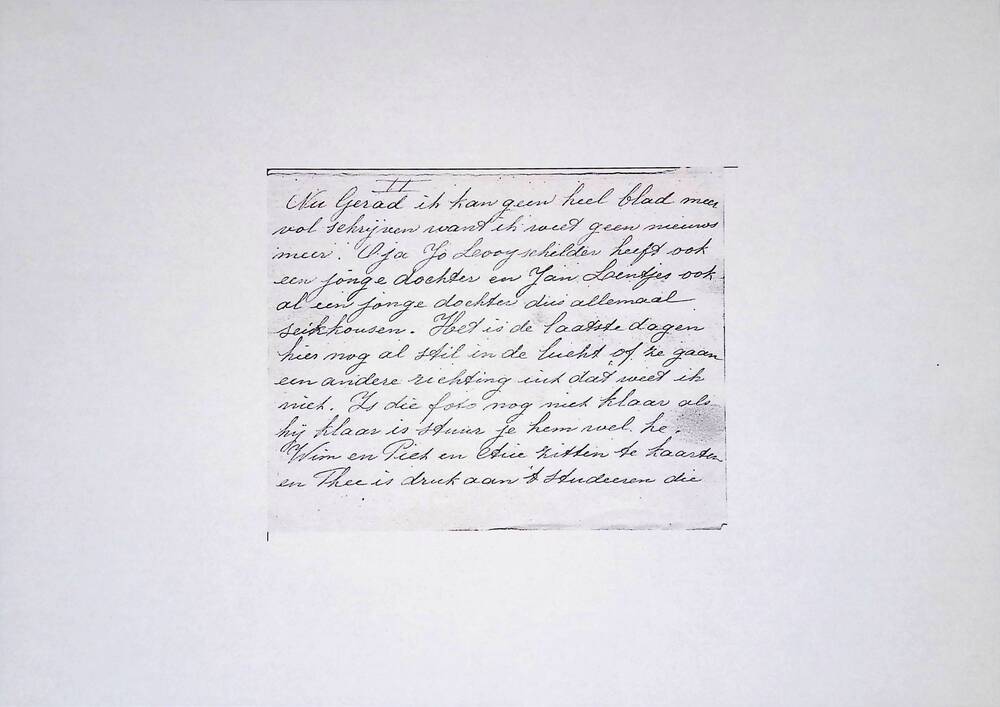 II
Nu Gerad ik kan geen heel blad meer
vol schrijven want ik weet geen nieuws
meer. O ja Jo heeft ook
een jonge dochter en Jan Leintjes ook
al een jonge dochter dus allemaal
Het is de laatste dagen
hier nog al stil in de lucht of ze gaan
een andere richting uit dat weet ik
niet. Is die foto nog niet klaar als
hij klaar is stuur je hem wel. he.
Wim en Piet en zitten te kaarten
en Thee is druk aan 't studeeren die